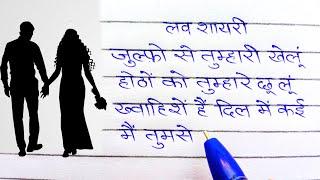 लव शायरी
जुल्फो से तुम्हारी खेलूं
होठों को तुम्हारे छू लूं
ख्वाहिशें हैं दिल में कई
मैं तुमसे